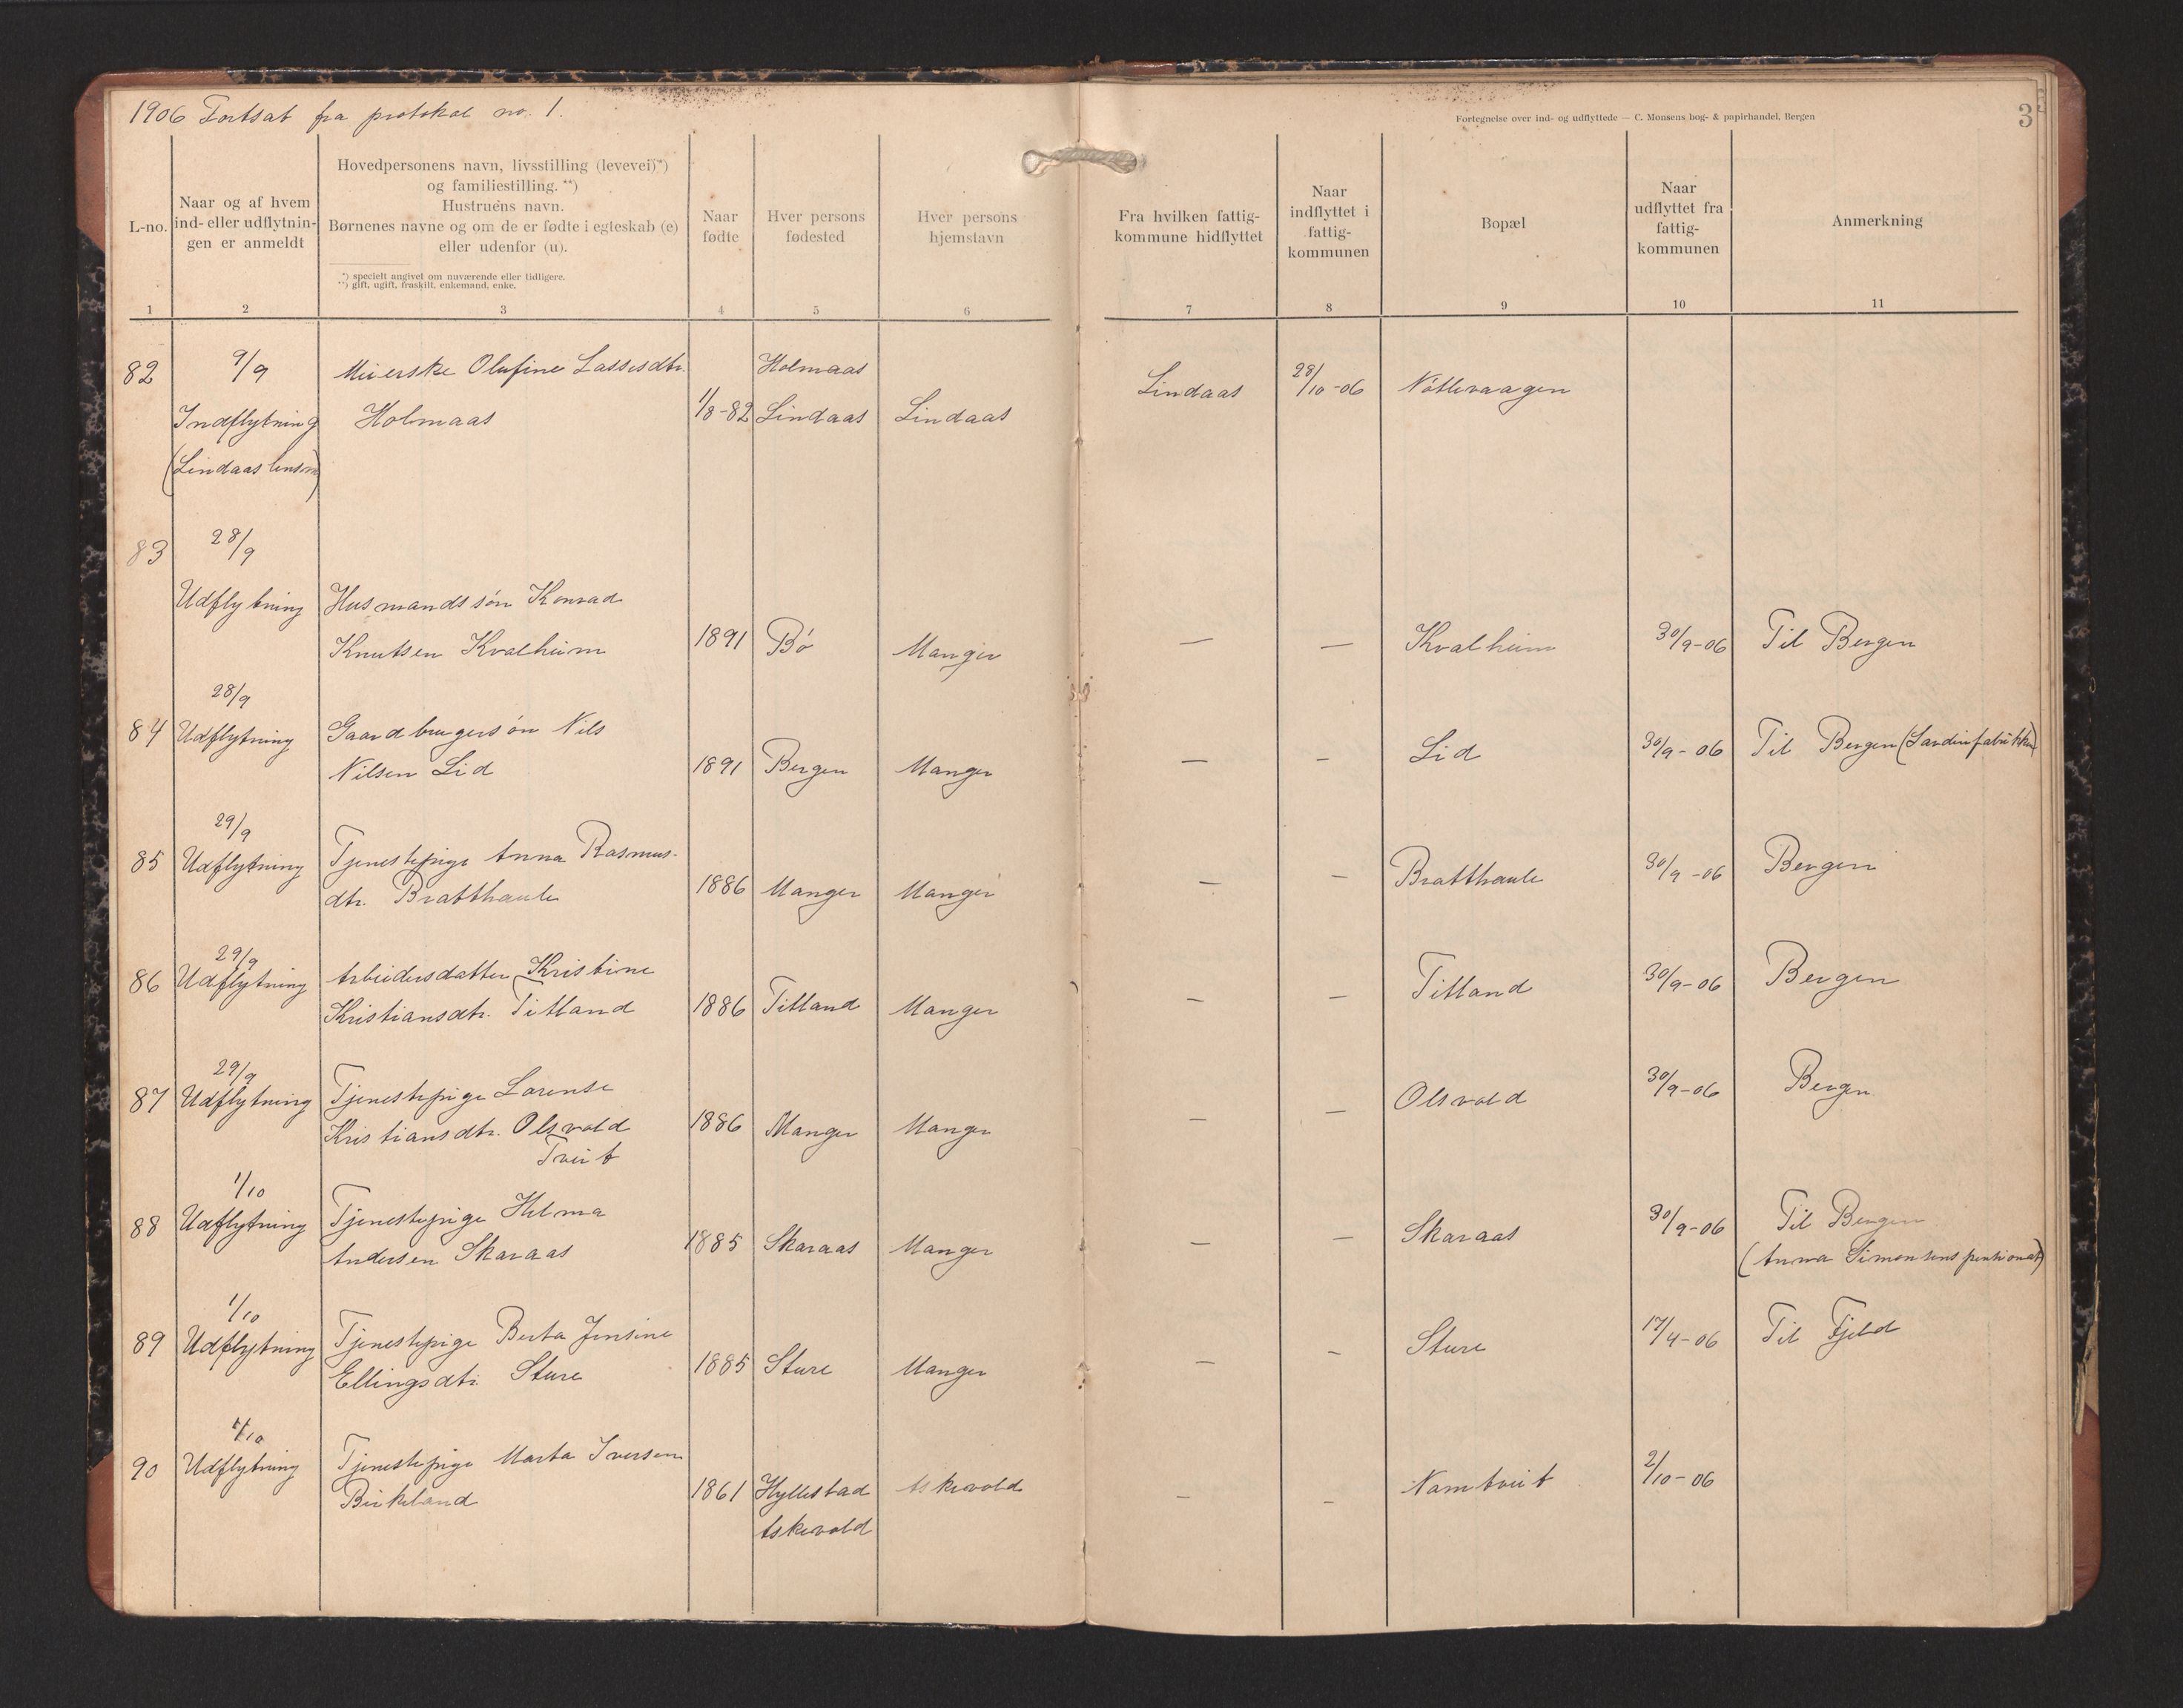 1906 Fortsat fra protokol no. 1.
Fortegnelse over ind- og udflyttede — C. Monsens bog- & papirhandel, Bergen
3
L-no.
Naar og af hvem
ind- eller udflytnin-
gen er anmeldt
Hovedpersonens navn, livsstilling (levevei)*)
og familiestilling. **)
Hustruens navn.
Børnenes navne og om de er fødte i egteskab (e)
eller udenfor (u).
*) specielt angivet om nuværende eller tidligere.
**) gift, ugift, fraskilt, enkemand, enke.
Naar
fødte
Hver persons
fødested
Hver persons
hjemstavn
Fra hvilken fattig-
kommune hidflyttet
Naar
indflyttet i
fattig-
kommunen
Bopæl
Naar
udflyttet fra
fattig-
kommunen
Anmerkning
1 2 3 4 5 6 7 8 9 10 11
82 9/9 Meierske Olufine Lassesdtr. Holmaas Lindaas 28/10-06 Nótlevaagen
Indflytning Holmaas 1/8-82 Lindaas Lindaas
(Lindaas lensm)
83 28/9
Udflytning Husmandssón Konrad
Knutsen Kvalheim 1891 Bó Manger — — Kvalheim 30/9-06 Til Bergen
28/9
84 Udflytning Gaardbrugersón Nils Lid 30/9-06 Til Bergen (Sardinfabrikken)
Nilsen Lid 1891 Bergen Manger — —
29/9
85 Udflytning Tjenestepige Anna Rasmus- Bratthaule 30/9-06 Bergen
dtr. Bratthaule 1886 Manger Manger — —
29/9
86 Udflytning Arbeidersdatter Kristine Titland 30/9-06 Bergen
Kristiansdtr. Titland 1886 Titland Manger — —
29/9
87 Udflytning Tjenestepige Lorense Olsvold 30/9-06 Bergen
Kristiansdtr. Olsvold 1886 Manger Manger — —
Tveit
1/10
88 Udflytning Tjenestepige Helma Skaraas 30/9-06 Til Bergen
Andersen Skaraas 1885 Skaraas Manger — — (Anna Simonsens pensionat)
1/10
89 Udflytning Tjenestepige Berta Jensine Sture 17/4-06 Til Fjeld
Ellingsdtr. Sture 1885 Sture Manger — —
1/10
90 Udflytning Tjenestepige Marta Iversen Namtveit 2/10-06
Birkeland 1861 Hyllestad Askevold — —
Askevold